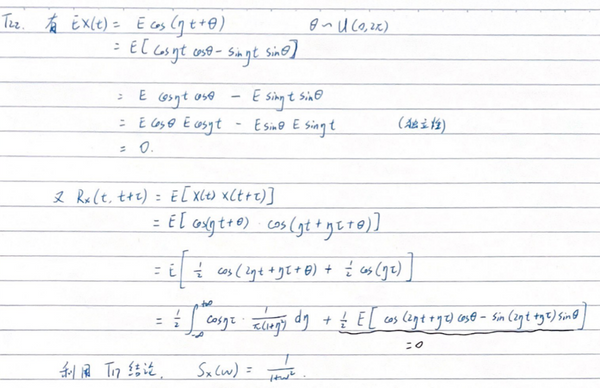 T22. 有 EX(t) = E cos(ηt+θ)    θ ~ U(0,2π)
= E[cosηt cosθ - sinηt sinθ]
= E cosηt cosθ - E sinηt sinθ
= E cosθ E cosηt - E sinθ E sinηt    (独立性)
= 0.
又 Rx(t, t+τ) = E[X(t) X(t+τ)]
= E[cos(ηt+θ) · cos(ηt+ητ+θ)]
= E[½ cos(2ηt+ητ+θ) + ½ cos(ητ)]
= ½ ∫_{-∞}^{+∞} cosητ · 1/(π(1+η²)) dη + ½ E[cos(2ηt+ητ)cosθ - sin(2ηt+ητ)sinθ]
=0
利用 T17 结论, Sx(ω) = 1/(1+ω²).